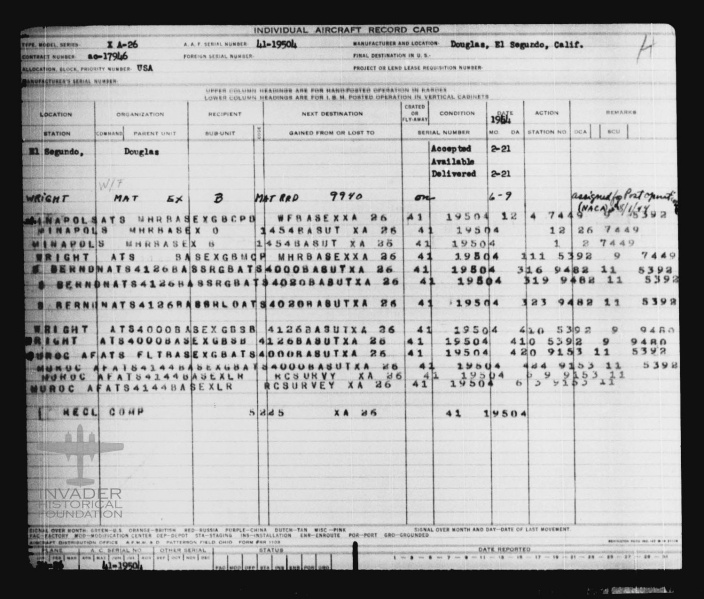 INDIVIDUAL AIRCRAFT RECORD CARD
TYPE, MODEL, SERIES X A-26 A. A. F. SERIAL NUMBER 41-19504 MANUFACTURER AND LOCATION Douglas, El Segundo, Calif.
CONTRACT NUMBER ac-17946 FOREIGN SERIAL NUMBER FINAL DESTINATION IN U. S.
ALLOCATION, BLOCK, PRIORITY NUMBER USA PROJECT OR LEND LEASE REQUISITION NUMBER
MANUFACTURER'S SERIAL NUMBER
UPPER COLUMN HEADINGS ARE FOR HAND-POSTED OPERATION IN KARDEX
LOWER COLUMN HEADINGS ARE FOR I. B. M. POSTED OPERATION IN VERTICAL CABINETS
LOCATION ORGANIZATION RECIPIENT NEXT DESTINATION CRATED OR FLY-AWAY CONDITION DATE ACTION REMARKS
STATION COMMAND PARENT UNIT SUB-UNIT GAINED FROM OR LOST TO SERIAL NUMBER MO. DA. STATION NO. OCA
El Segundo, Douglas Accepted 2-21
Available
Delivered 2-21
W/F
WRIGHT MAT EX B MAT RRD 9940 on 6-9
MINAPOLS ATS MHRBASEXGBCPD WFBASEXXA 26 41 19504 12 4 7449 9 5392
MINAPOLS MHRBASEX 0 1454BASUT XA 26 41 19504 12 26 7449
MINAPOLS MHRBASEX B 1454BASUT XA 26 41 19504 1 2 7449
WRIGHT ATS BASEXGBMCP MHRBASEXXA 26 41 19504 111 5392 9 7449
S BERNDNATS4126BASSRGBATS4000BASUTXA 26 41 19504 316 9482 11 5392
S BERNDNATS4126BASSRGBATS4020BASUTXA 26 41 19504 319 9482 11 5392
S BERNDNATS4126BASSRLOATS4020BASUTXA 26 41 19504 323 9482 11 5392
WRIGHT ATS4000BASEXGBSB 4126BASUTXA 26 41 19504 410 5392 9 9480
WRIGHT ATS4000BASEXGBSB 4126BASUTXA 26 41 19504 410 5392 9 9480
MUROC AFATS FLTBASEXGBATS4000BASUTXA 26 41 19504 420 9153 11 5392
MUROC AFATS4144BASEXGBATS4000BASUTXA 26 41 19504 424 9153 11 5392
MUROC AFATS4144BASEXLR RCSURVY XA 26 41 19504 5 9 9153 11
MUROC AFATS4144BASEXLR RCSURVEY XA 26 41 19504 6 5 9153 11
RECL CORP 5225 XA 26 41 19504
INVADER
HISTORICAL
FOUNDATION
SIGNAL OVER MONTH: GREEN-U.S. ORANGE-BRITISH RED-RUSSIA PURPLE-CHINA DUTCH-TAN MISC-PINK SIGNAL OVER MONTH AND DAY-DATE OF LAST MOVEMENT.
FAC-FACTORY MOD-MODIFICATION CENTER DEP-DEPOT STA-STAGING INS-INSTALLATION ENR-ENROUTE POR-PORT GRD-GROUNDED
AIRCRAFT DISTRIBUTION OFFICE PATTERSON FIELD OHIO
PLANE A. C. SERIAL NO. OTHER SERIAL STATUS DATE REPORTED
41-19504 FAC MOD DEP STA INS ENR POR GRD